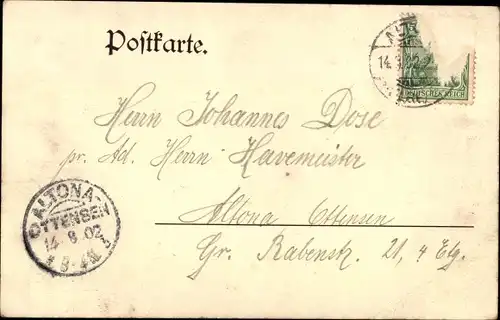 Postkarte.
DEUTSCHES REICH
Herrn Johannes Dose
pr. Ad. Herrn Havemeister
Altona Ottensen
Gr. Rabenstr. 21, 4 Etg.
ALTONA-
OTTENSEN